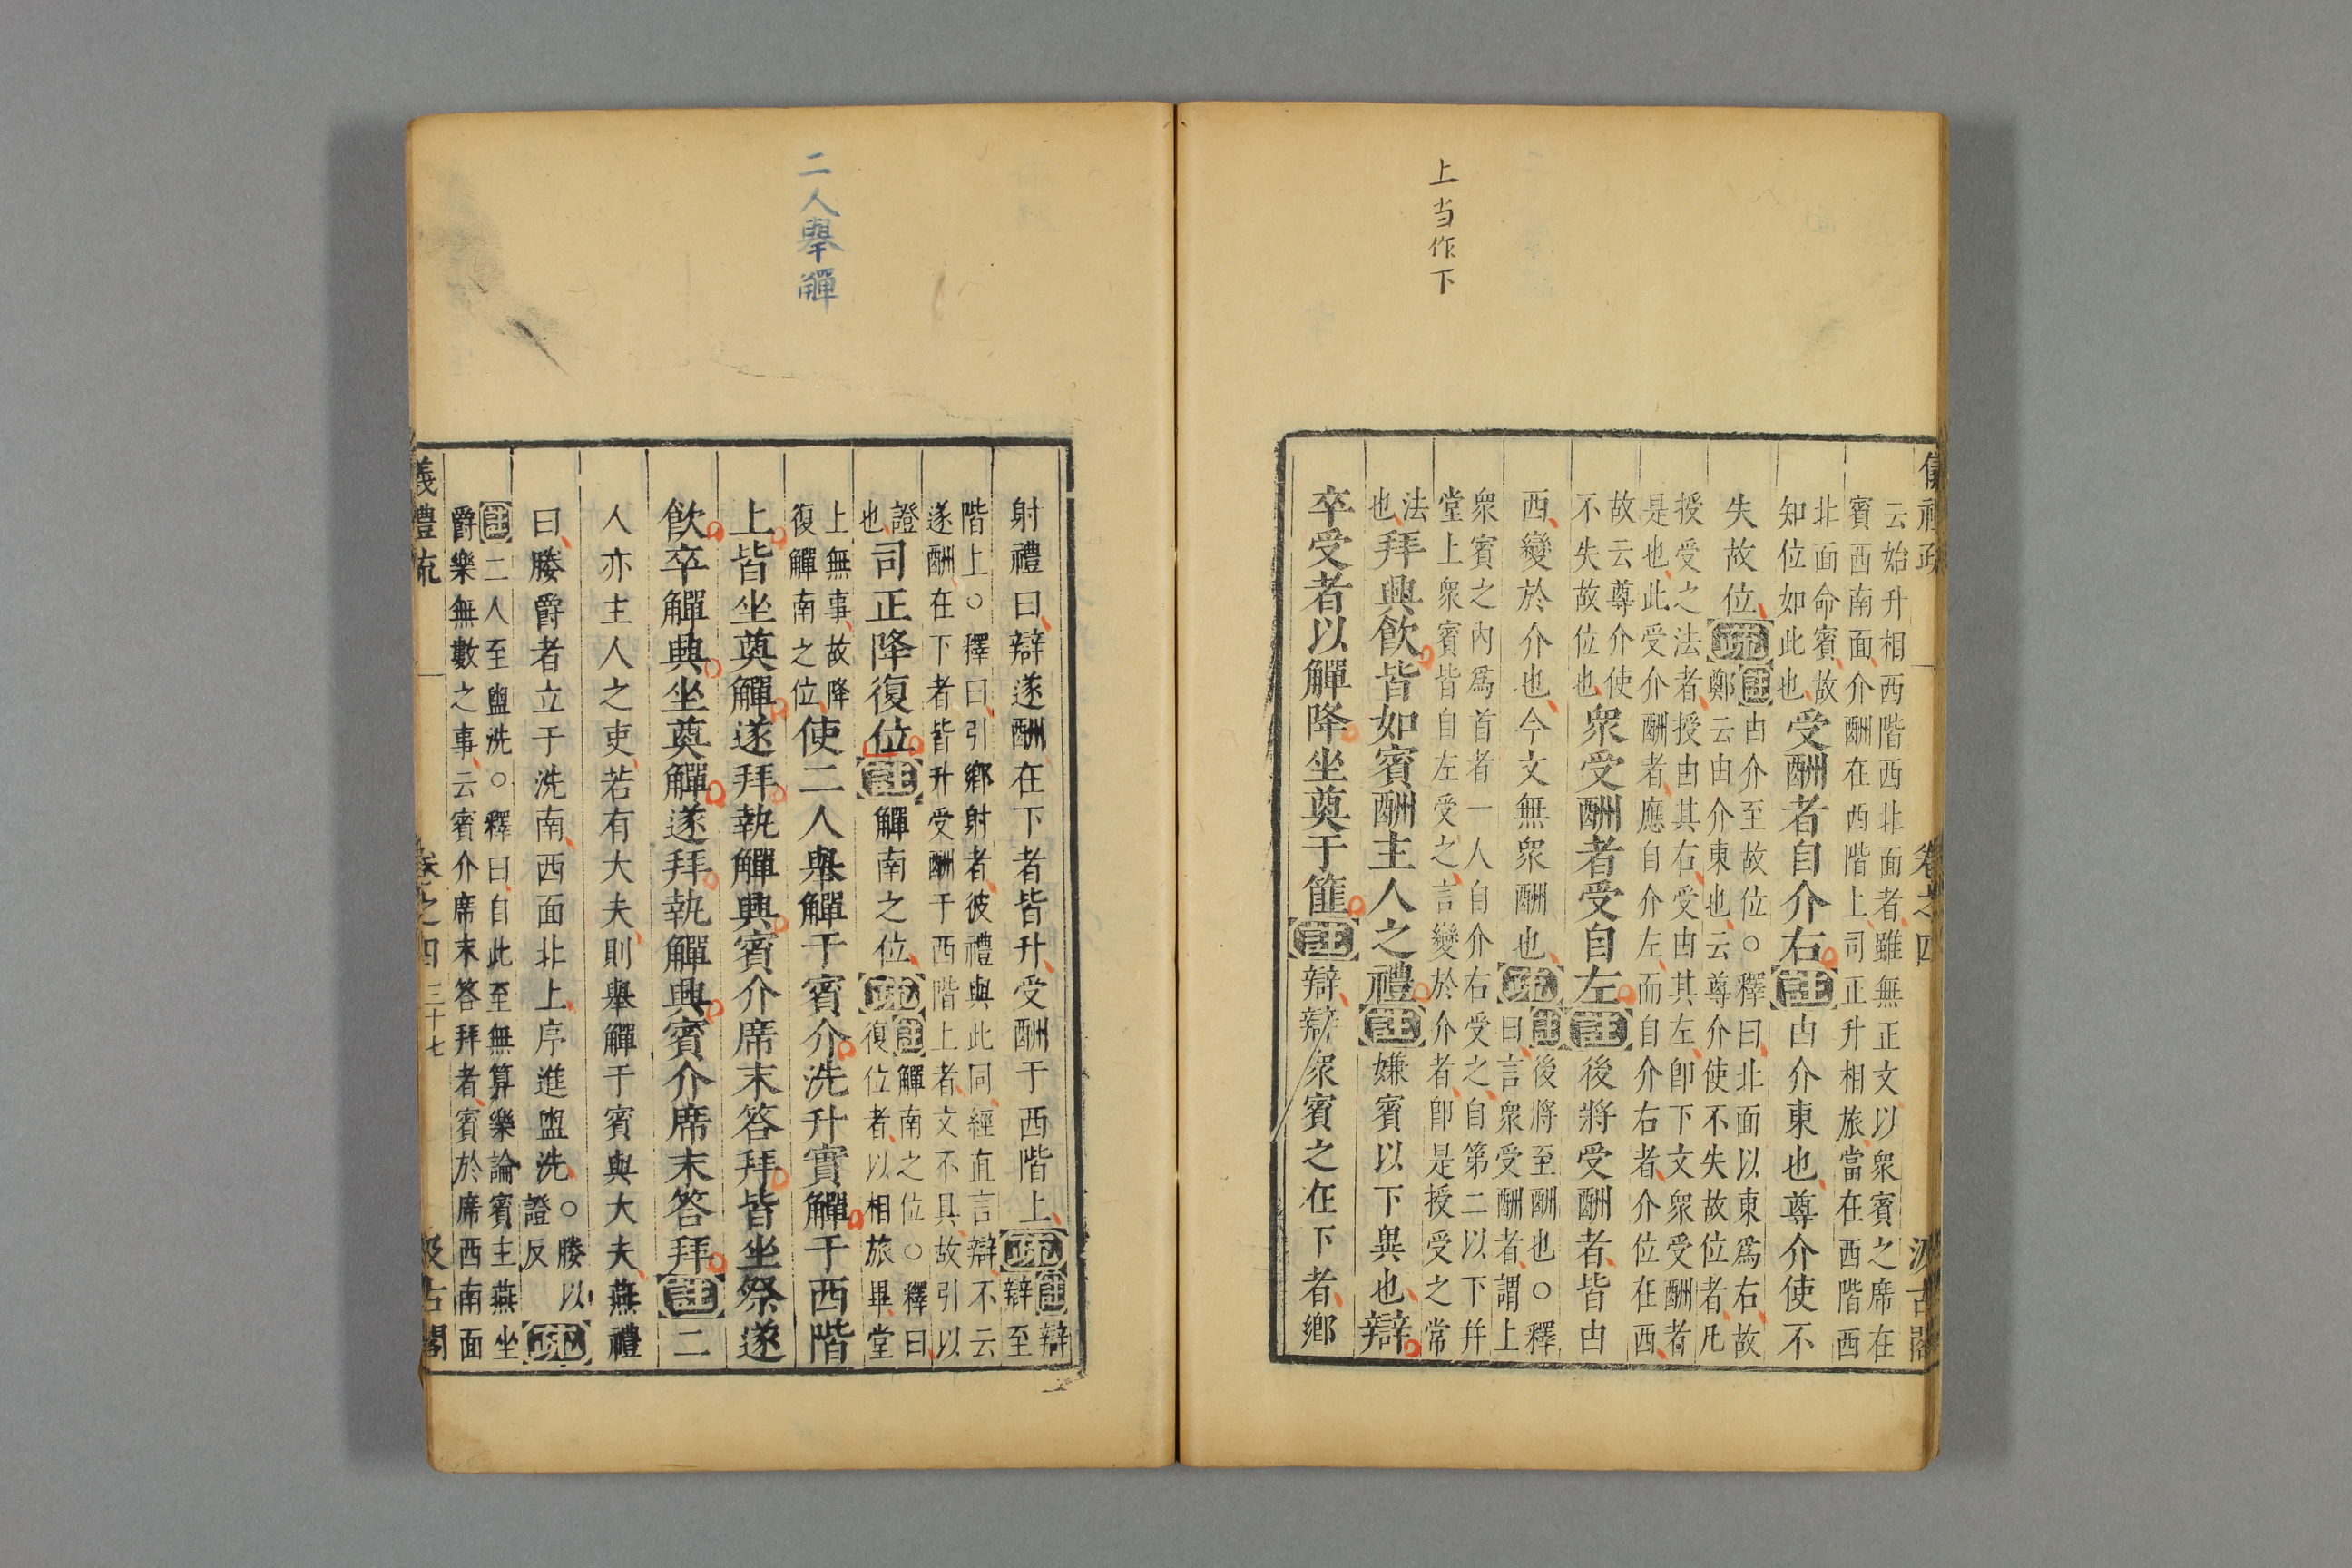 上当作下
云始升相西階西北面者雖無正文以衆賓之席在
賓西南面介酬在西階上司正升相旅當在西階西
北面命賓故
知位如此也
受酬者自介右
註
由介東也尊介使不
失故位
疏
註由介至故位○釋曰北面以東爲右故
鄭云由介東也云尊介使不失故位者凡
授受之法者授由其右受由其左卽下文衆受酬者
是也此受介酬者應自介左而自介右者介位在西
故云尊介使
不失故位也
衆受酬者受自左
註
後將受酬者皆由
西變於介也今文無衆酬也
疏
註後將至酬也○釋
曰言衆受酬者謂上
衆賓之內爲首者一人自介右受之自第二以下幷
堂上衆賓皆自左受之言變於介者卽是授受之常
法
也
拜興飲皆如賓酬主人之禮
註
嫌賓以下異也
辯
卒受者以觶降坐奠于篚
註
辯辯衆賓之在下者鄉
儀禮疏 卷之四 汲古閣
二人舉觶
射禮曰辯遂酬在下者皆升受酬于西階上
疏
註辯
辯至
階上○釋曰引鄉射者彼禮與此同經直言辯不云
遂酬在下者皆升受酬于西階上者文不具故引以
證
也
司正降復位
註
觶南之位
疏
註觶南之位○釋曰
復位者以相旅畢堂
上無事故降
復觶南之位
使二人舉觶于賓介洗升實觶于西階
上皆坐奠觶遂拜執觶興賓介席末答拜皆坐祭遂
飲卒觶興坐奠觶遂拜執觶興賓介席末答拜
註
二
人亦主人之吏若有大夫則舉觶于賓與大夫燕禮
曰媵爵者立于洗南西面北上序進盥洗
○媵以
證反
疏
註二人至盥洗○釋曰自此至無算樂論賓主燕坐
爵樂無數之事云賓介席末答拜者賓於席西南面
儀禮疏 卷之四 三十七 汲古閣